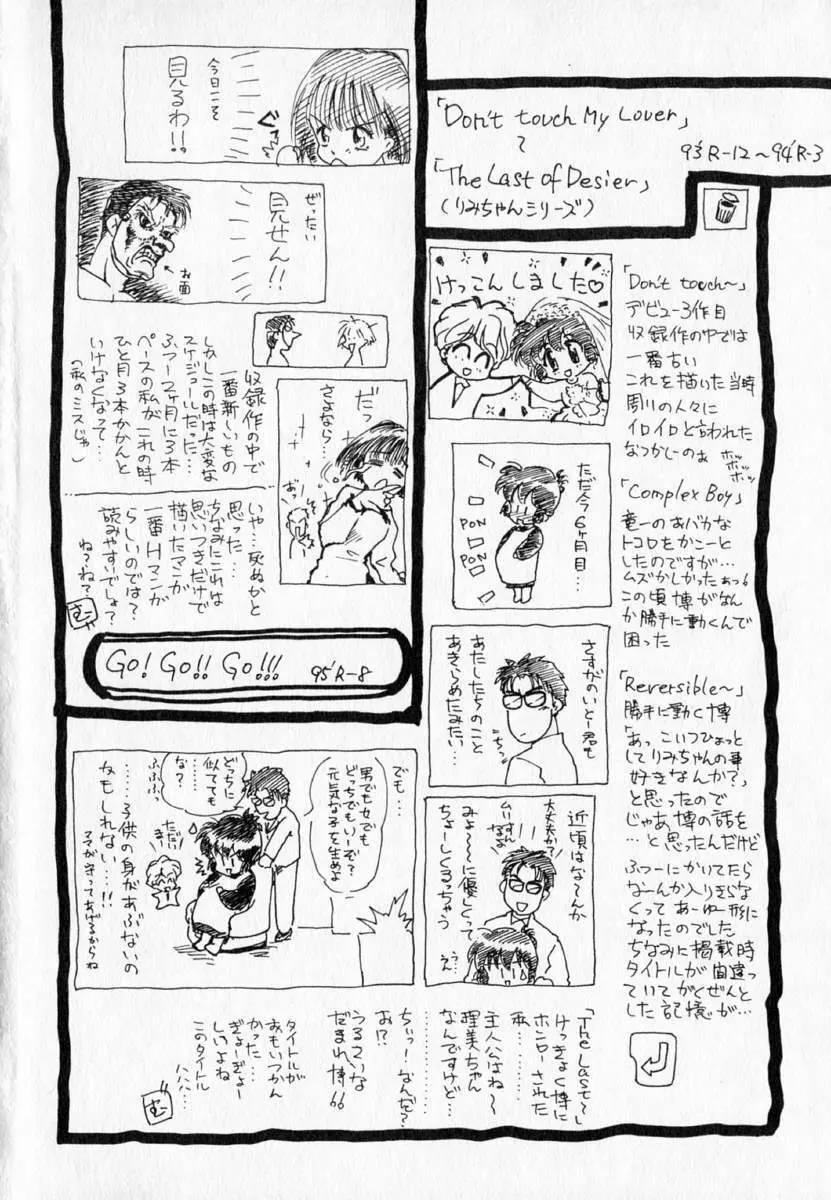 「Don't touch My Lover」
〜
「The Last of Desier」
(りみちゃんシリーズ)
93'R-12〜94'R-3
「Don't touch〜」
デビュー3作目
収録作の中では
一番古い
これを描いた当時
周りの人々に
イロイロと言われた
なつかしーのぉ
ホッ
ホッ
ホッ
「Complex Boy」
竜一のおバカな
トコロをかこーと
したのですが…
ムズかしかったぁっ。
この頃博がなん
か勝手に動くんで
困った
「Reversible〜」
勝手に動く博
「あっこいつひょっと
してりみちゃんの事
好きなんか?」
と思ったので
じゃあ博の話を
…と思ったんだけど
ふつーにかいてたら
なーんか入りきらな
くってあーゆー形に
なったのでした
ちなみに掲載時
タイトルが間違っ
ていてがくぜんと
した記憶が…
けっこんしました♡
ただ今6ヶ月目…
PON
PON
さすがのいとー君も
あたしたちのこと
あきらめたみたい…
近頃はな〜んか
みょ〜〜に優しくって
ちょーしくるっちゃう
大丈夫か?
ムリすん
なよ
でも…
男でも女でも
どっちでもいーぞ?
元気な子を生めよ
どっちに
似てても
な?
ふふふっ
ただいまー
……子供の身があぶないの
かもしれない…!!
ママが守ってあげるからね
「The Last〜」
けっきょく博に
ホンローされた
私………
主人公はね〜
理美ちゃん
なんですけど…
……
ちぃっ!なんだ?
お!?
うるさいな
だまれ博!!
タイトルが
おもいつかん
かった…
ぎょーぎょー
しいよね
このタイトル
ハハハ…
今日こそ
見るわ!!
ぜったい
見せん!!
お面
だっ
さよなら…
おーっ
収録作の中で
一番新しいもの
しかしこの時は大変な
スケジュールだった…
ふつー2ヶ月に3本
ペースの私がこれの時
ひと月3本かかんと
いけなくなって…
(私のミスじゃ)
いや…死ぬかと
思った…
ちなみにこれは
思いつきだけで
描いたマンガ
一番Hマンガ
らしいのでは?
読みやすいでしょ?
ね?ね?
Go! Go!! Go!!! 95'R-8